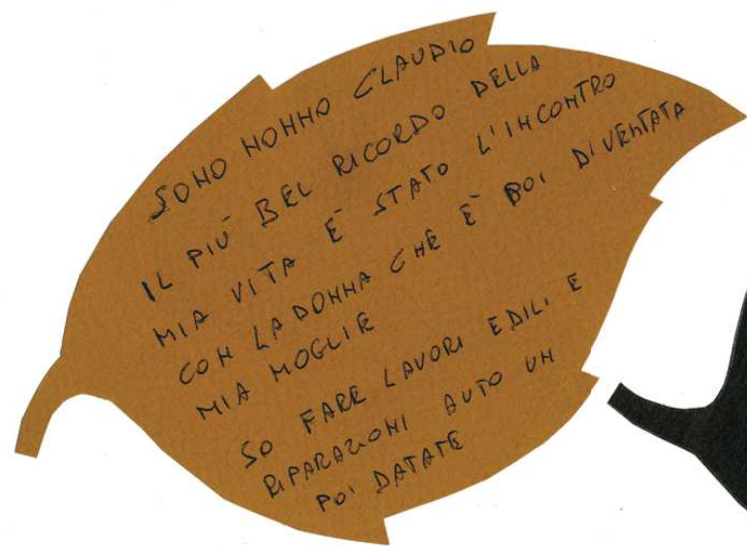 SONO NONNO CLAUDIO
IL PIÙ BEL RICORDO DELLA
MIA VITA È STATO L'INCONTRO
CON LA DONNA CHE È POI DIVENTATA
MIA MOGLIE
SO FARE LAVORI EDILI E
RIPARAZIONI AUTO UN
POI DATATE